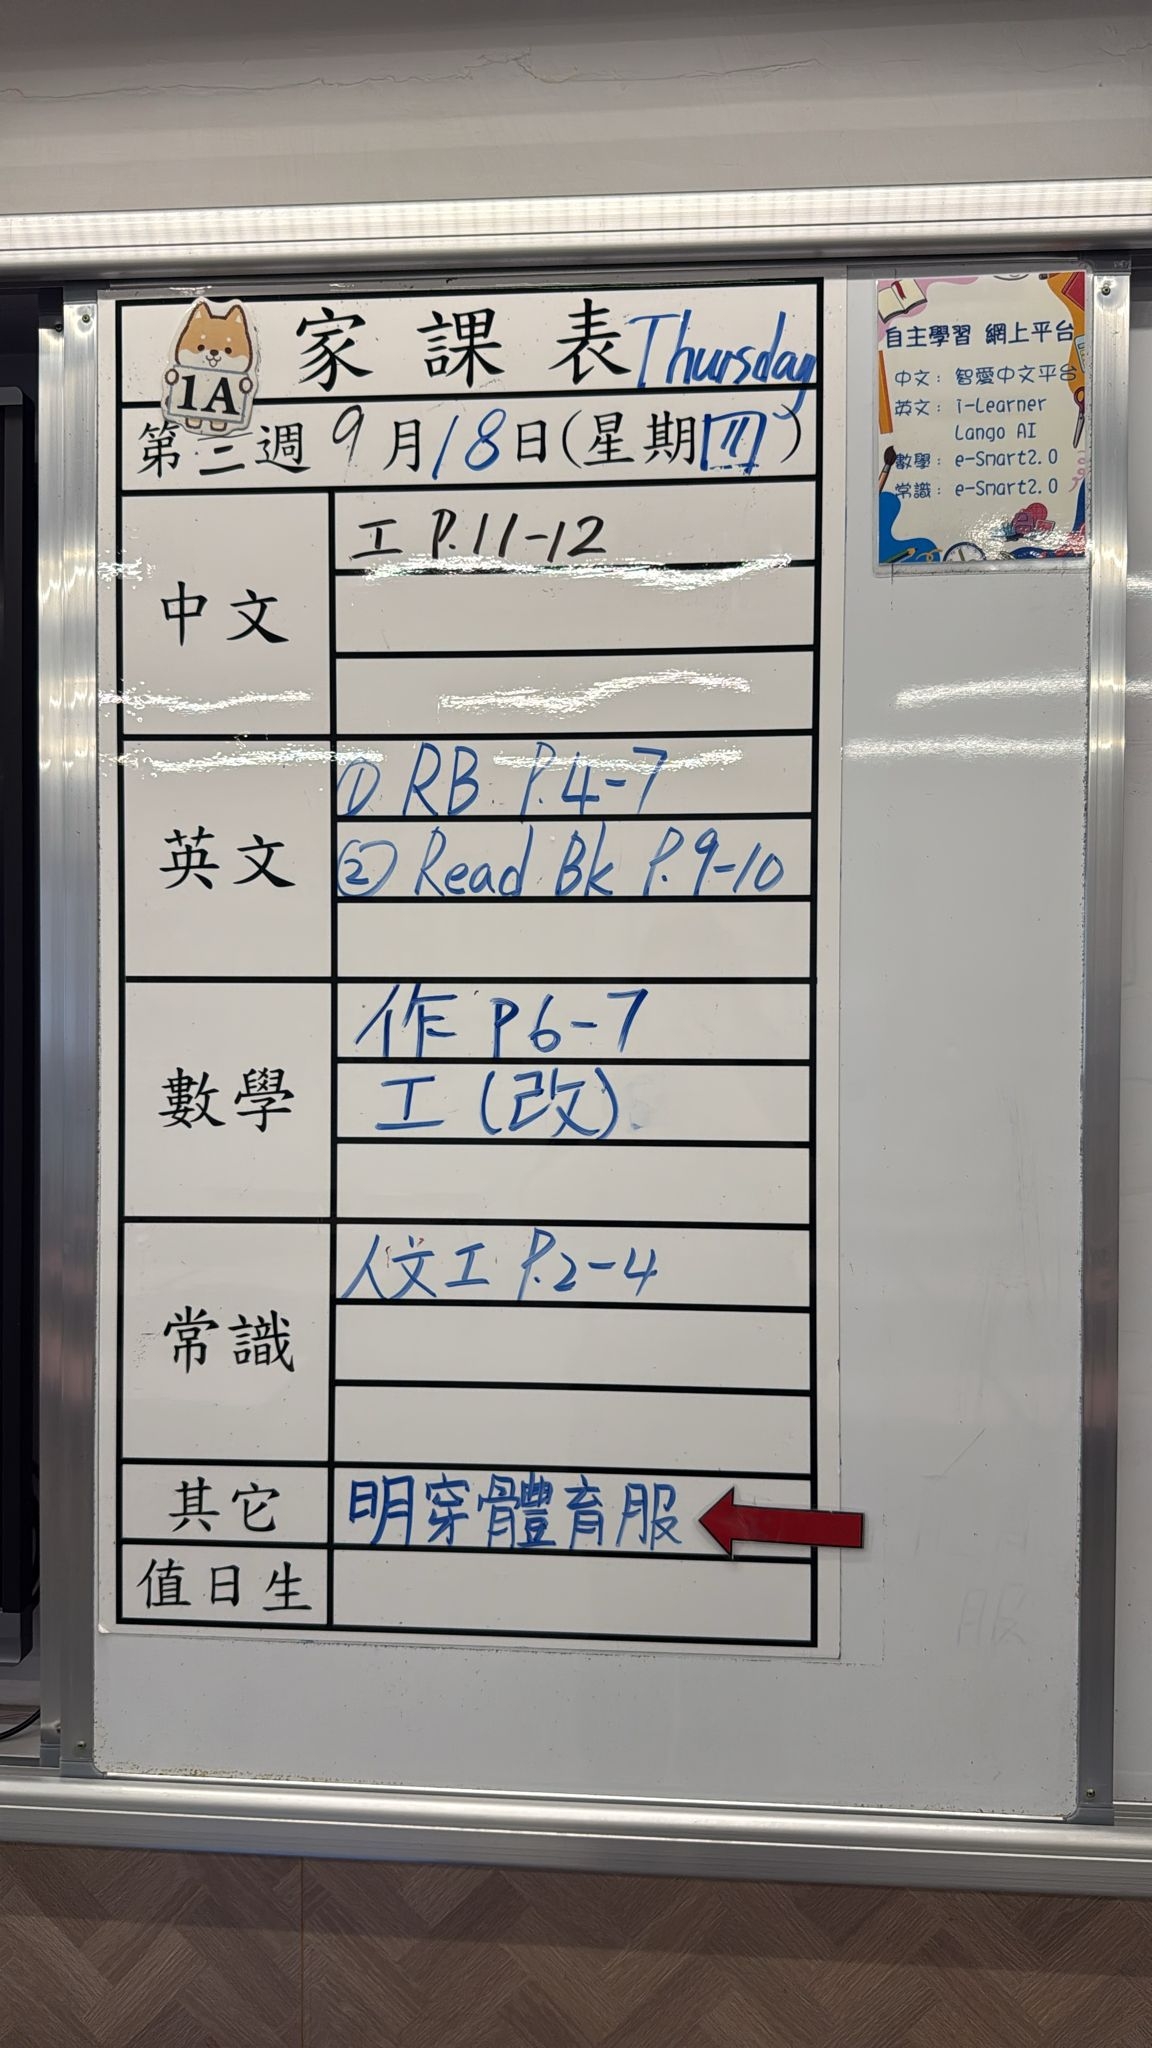 家課表 Thursday
1A
第三週 9月18日(星期四)
中文
工 P.11-12
英文
① RB P.4-7
② Read Bk P.9-10
數學
作 P6-7
工 (改)
常識
人文工 P.2-4
其它
明穿體育服
值日生
自主學習 網上平台
中文: 智愛中文平台
英文: i-Learner
Lango AI
數學: e-Smart2.0
常識: e-Smart2.0
服